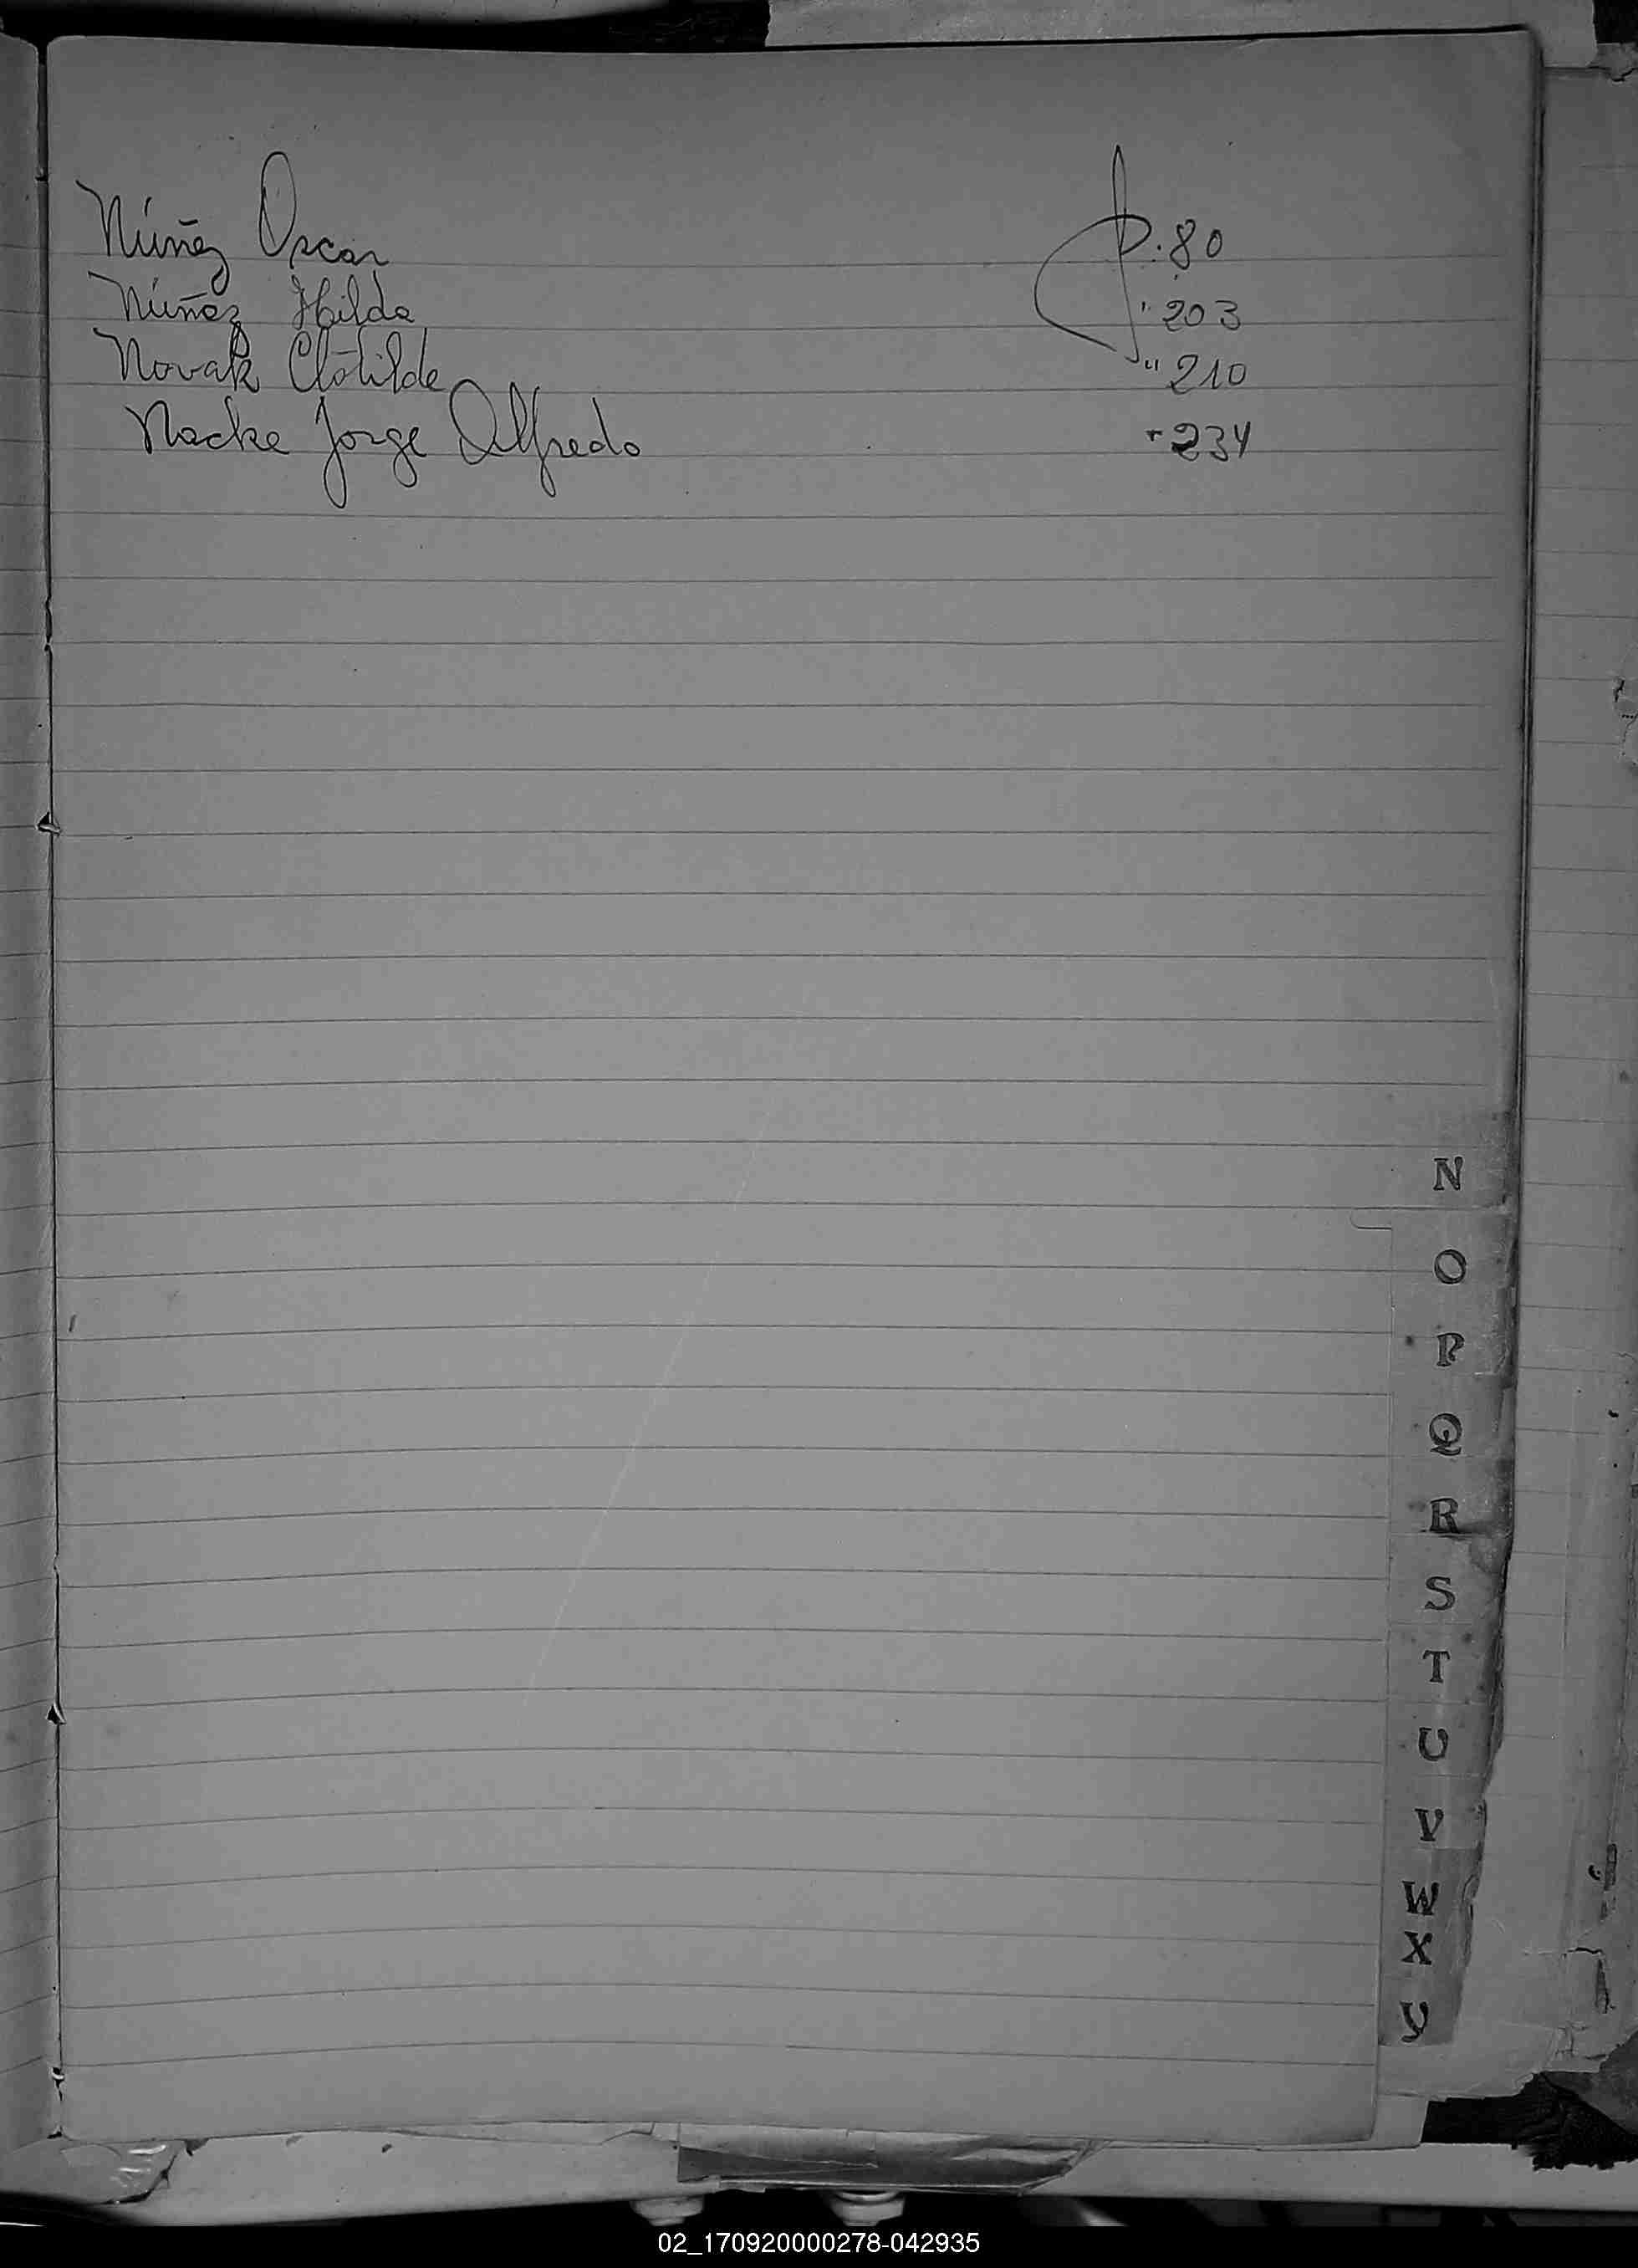 Núñez Oscar p. 80
Núñez Hilda " 203
Novak Clotilde " 210
Nacke Jorge Alfredo " 234
N
O
P
Q
R
S
T
U
V
W
X
Y
02_170920000278-042935